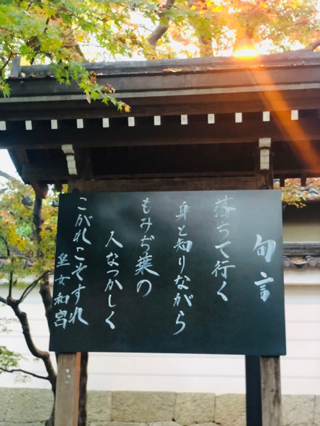 句言
落ちて行く
身と知りながら
もみぢ葉の
人なつかしく
こがれこそすれ
皇女和宮